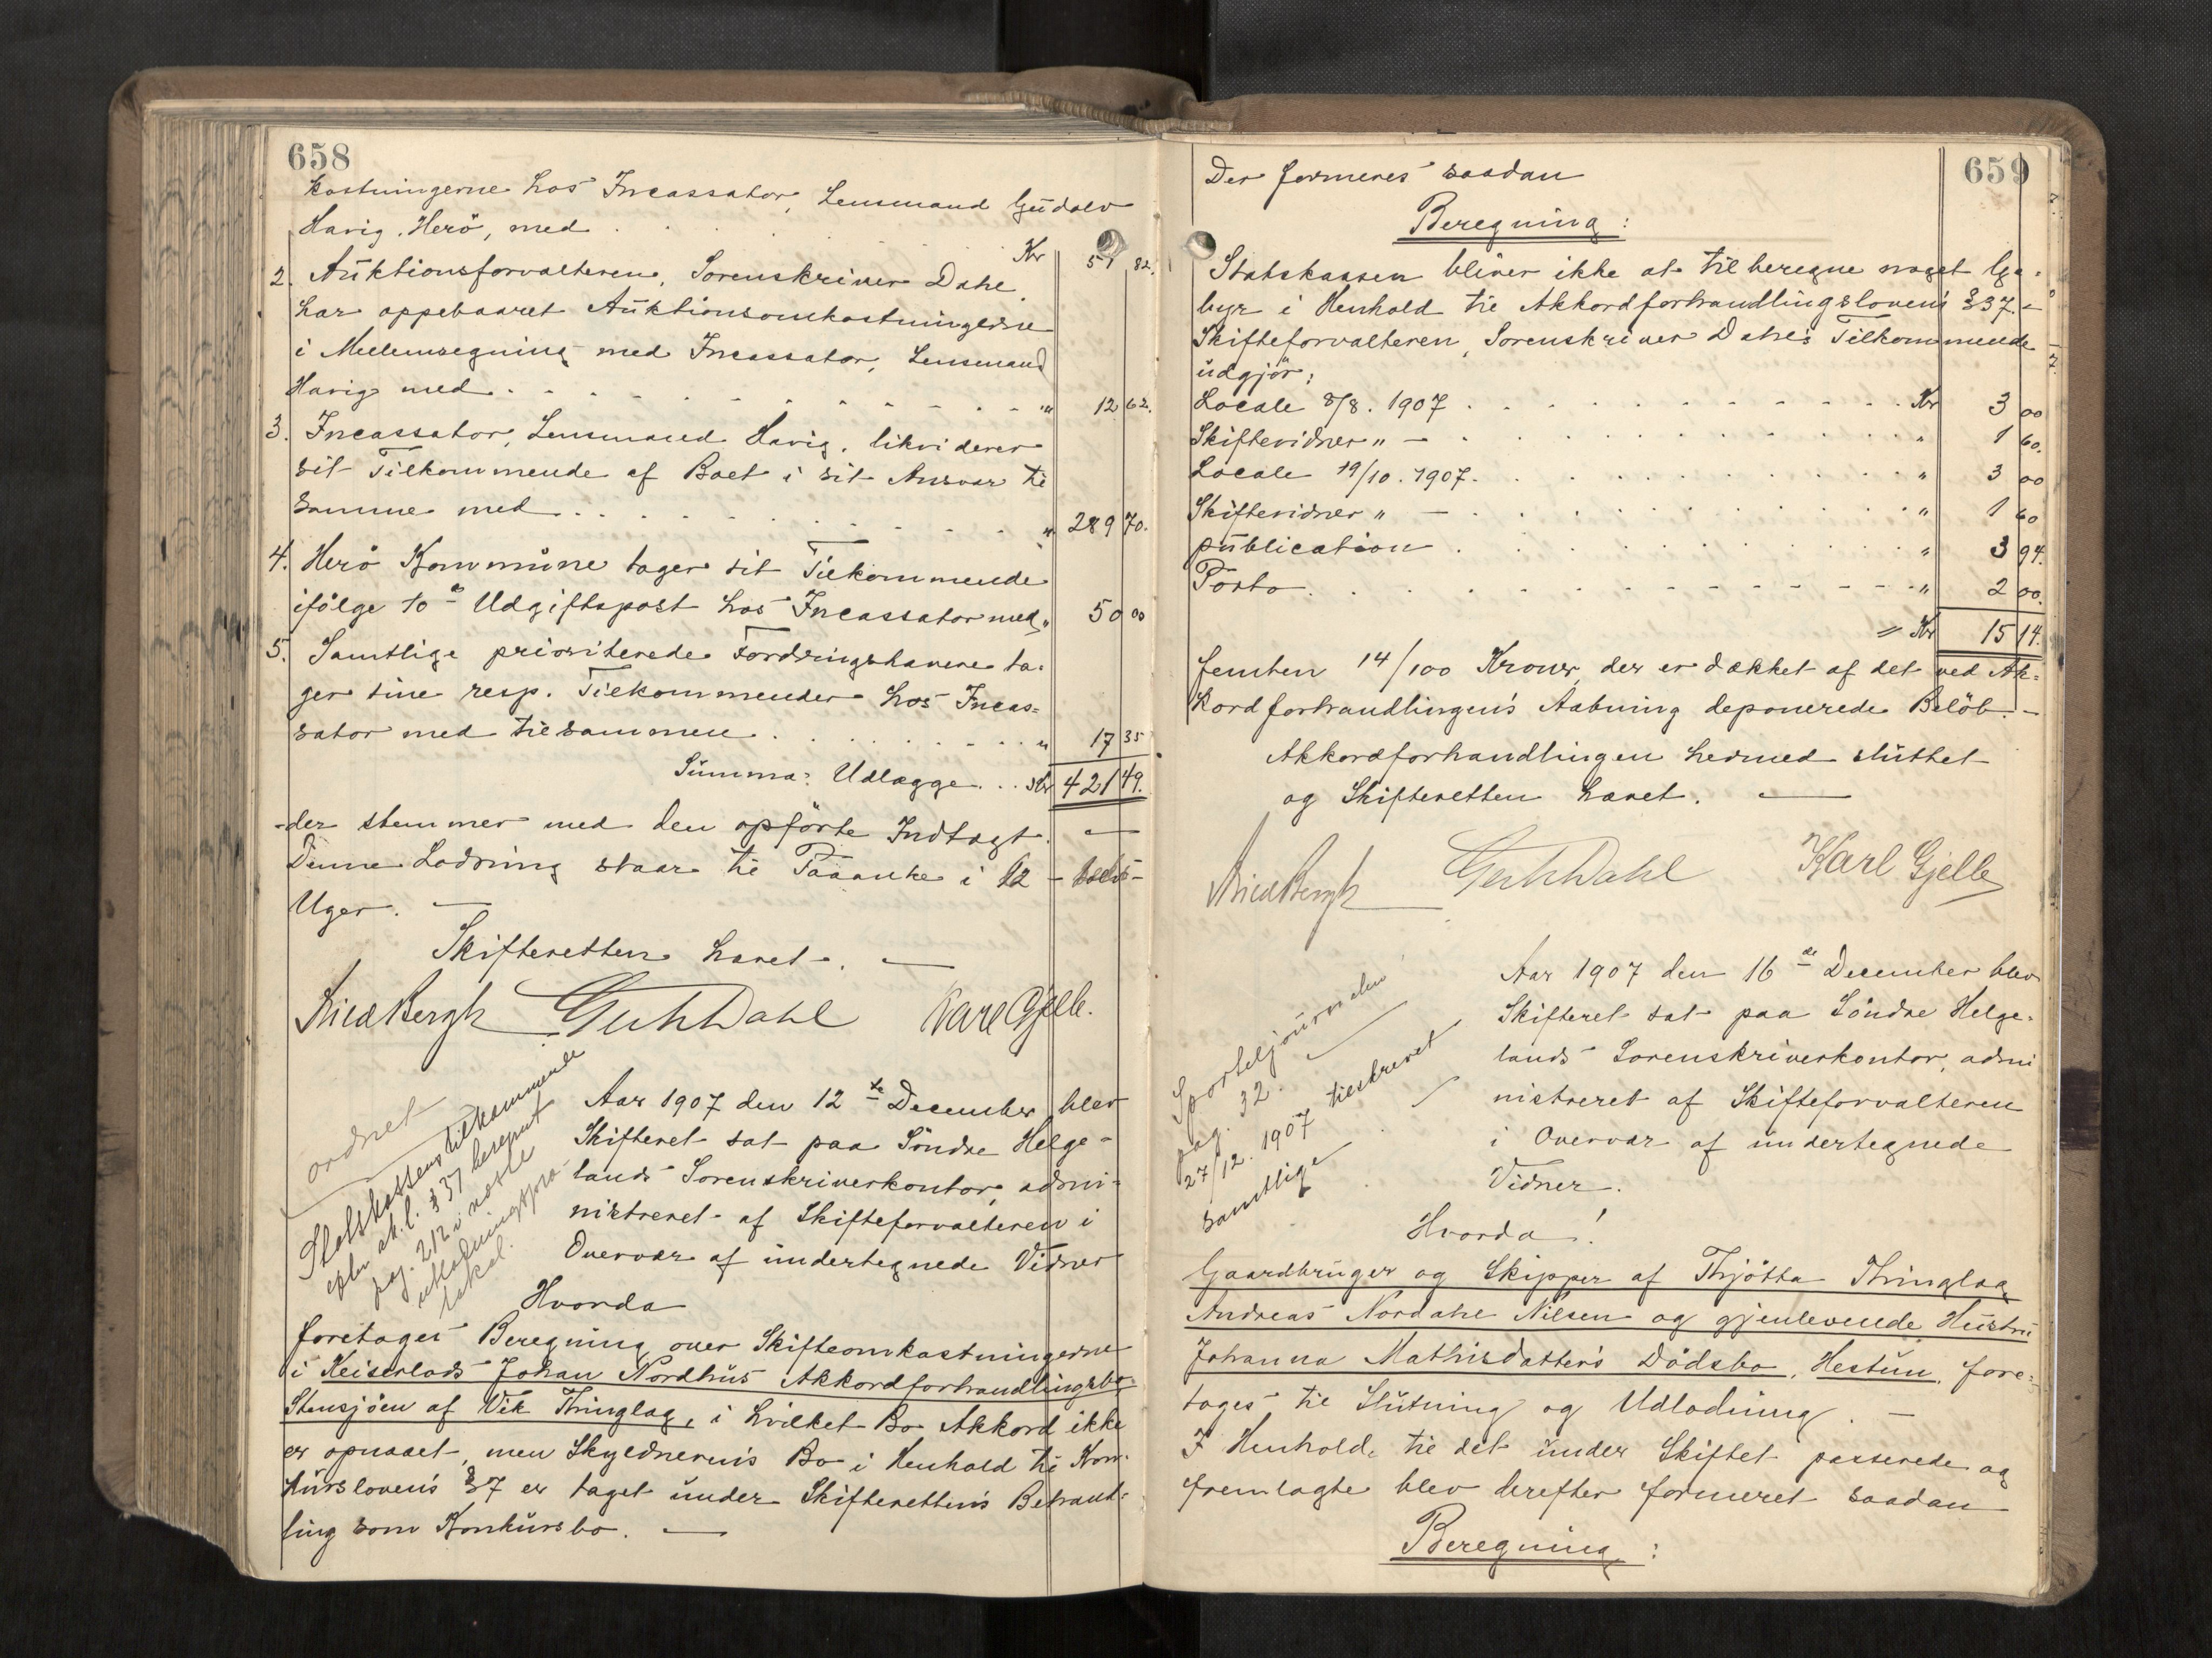 658
kostningerne hos Incassator, Lensmand Gudolv
Havig. Herö, med . . . . . Kr 51 82.
2. Auktionsforvalteren, Sorenskriver Dahl
har oppebaaret Auktionsomkostningerne
i Mellemregning med Incassator, Lensmand
Havig med . . . . . " 12 62.
3. Incassator, Lensmand Havig, likviderer
sit Tilkommende af Boet i sit Ansvar til
samme med . . . . . " 289 70.
4. Herö Kommune tager sit Tilkommende
ifölge 10de Udgiftspost hos Incassator med " 50 00
5. Samtlige prioriterede Fordringshavere ta-
ger sine resp. Tilkommender hos Incas-
sator med tilsammen . . . . . " 17 35
Summa: Udlægge . . Kr 421 49.
-der stemmer med den opförte Indtægt. —
Denne Lodning staar til Paaanke i 12 - tolv -
Uger. —
Skifteretten hævet. —
GuthDahl Karl Gjelle.
ordnet
Statskassens tilkommende
efter ak.l. § 37 beregnet
pag. 212 i næste
utlodningspro-
tokol.
Aar 1907 den 12te December blev
Skifteret sat paa Söndre Helge-
lands Sorenskriverkontor, admi-
nistreret af Skifteforvalteren i
Overvær af undertegnede Vidner
Hvorda
foretages Beregning over Skifteomkostningerne
i Keiserlods Johan Nordhus Akkordforhandlingsbo
Stensjöen af Vik Thinglag, i hvilket Bo Akkord ikke
er opnaaet, men Skyldnerens Bo i Henhold til Kon-
kurslovens § 7 er taget under Skifterettens Behand-
ling som Konkursbo. —
659
Der formeres saadan
Beregning:
Statskassen bliver ikke at tilberegne noget Ge-
byr i Henhold til Akkordforhandlingslovens § 37. -
Skifteforvalteren, Sorenskriver Dahls Tilkommende
udgjör:
Locale 8/8. 1907 . . . . . Kr 3 00
Skiftevidner " — . . . . . " 1 60.
Locale 19/10. 1907. . . . . . " 3 00
Skiftevidner " — . . . . . " 1 60
publication . . . . . " 3 94.
Porto . . . . . " 2 00.
= Kr 15 14.
femten 14/100 Kroner, der er dækket af det ved Ak-
kordforhandlingens Aabning deponerede Belöb. -
Akkordforhandlingen hermed sluttet
og Skifteretten hævet. —
GuthDahl Karl Gjelle
Sporteljournalen
pag. 32.
27/12. 1907 tilskrevet
samtlige
Aar 1907 den 16de December blev
Skifteret sat paa Söndre Helge-
lands Sorenskriverkontor, admi
nistreret af Skifteforvalteren
i Overvær af undertegnede
Vidner.
Hvorda!
Gaardbruger og Skipper af Thjötta Thinglag
Andreas Nordahl Nilsen og gjenlevende Hustru
Johanna Mathisdatters Dödsbo, Hestun, fore-
tages til Slutning og Udlodning. —
I Henhold til det under Skiftet passerede og
fremlagte blev derefter formeret saadan
Beregning: